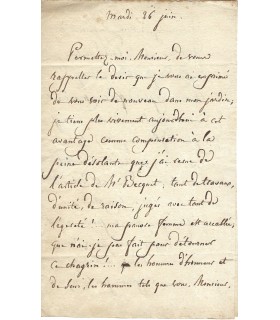 Mardi 26 juin.
Permettez-moi, Monsieur, de vous
rappeller le desir que je vous ai exprimé
de vous voir de nouveau dans mon jardin;
je tiens plus vivement aujourd'hui à cet
avantage comme compensation à la
peine désolante que j'ai reçue de
l'article de Mr Becquet, tant de travaux,
d'unité, de raison, jugés avec tant de
légèreté! ma pauvre femme est accablée,
que n'ai-je pas fait pour détourner
ce chagrin!.. les hommes d'honneur et
de sens, les hommes tels que vous, Monsieur,